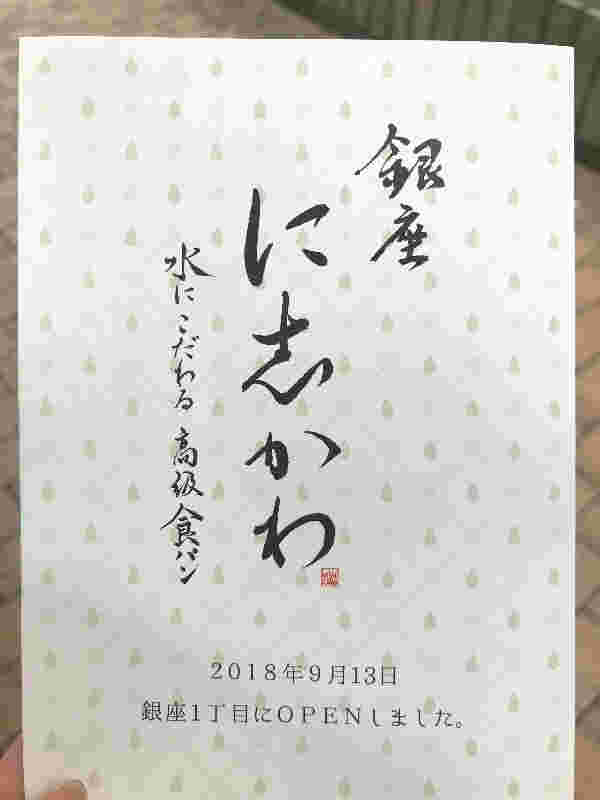 銀座
に志かわ
水にこだわる高級食パン
2018年9月13日
銀座1丁目にOPENしました。